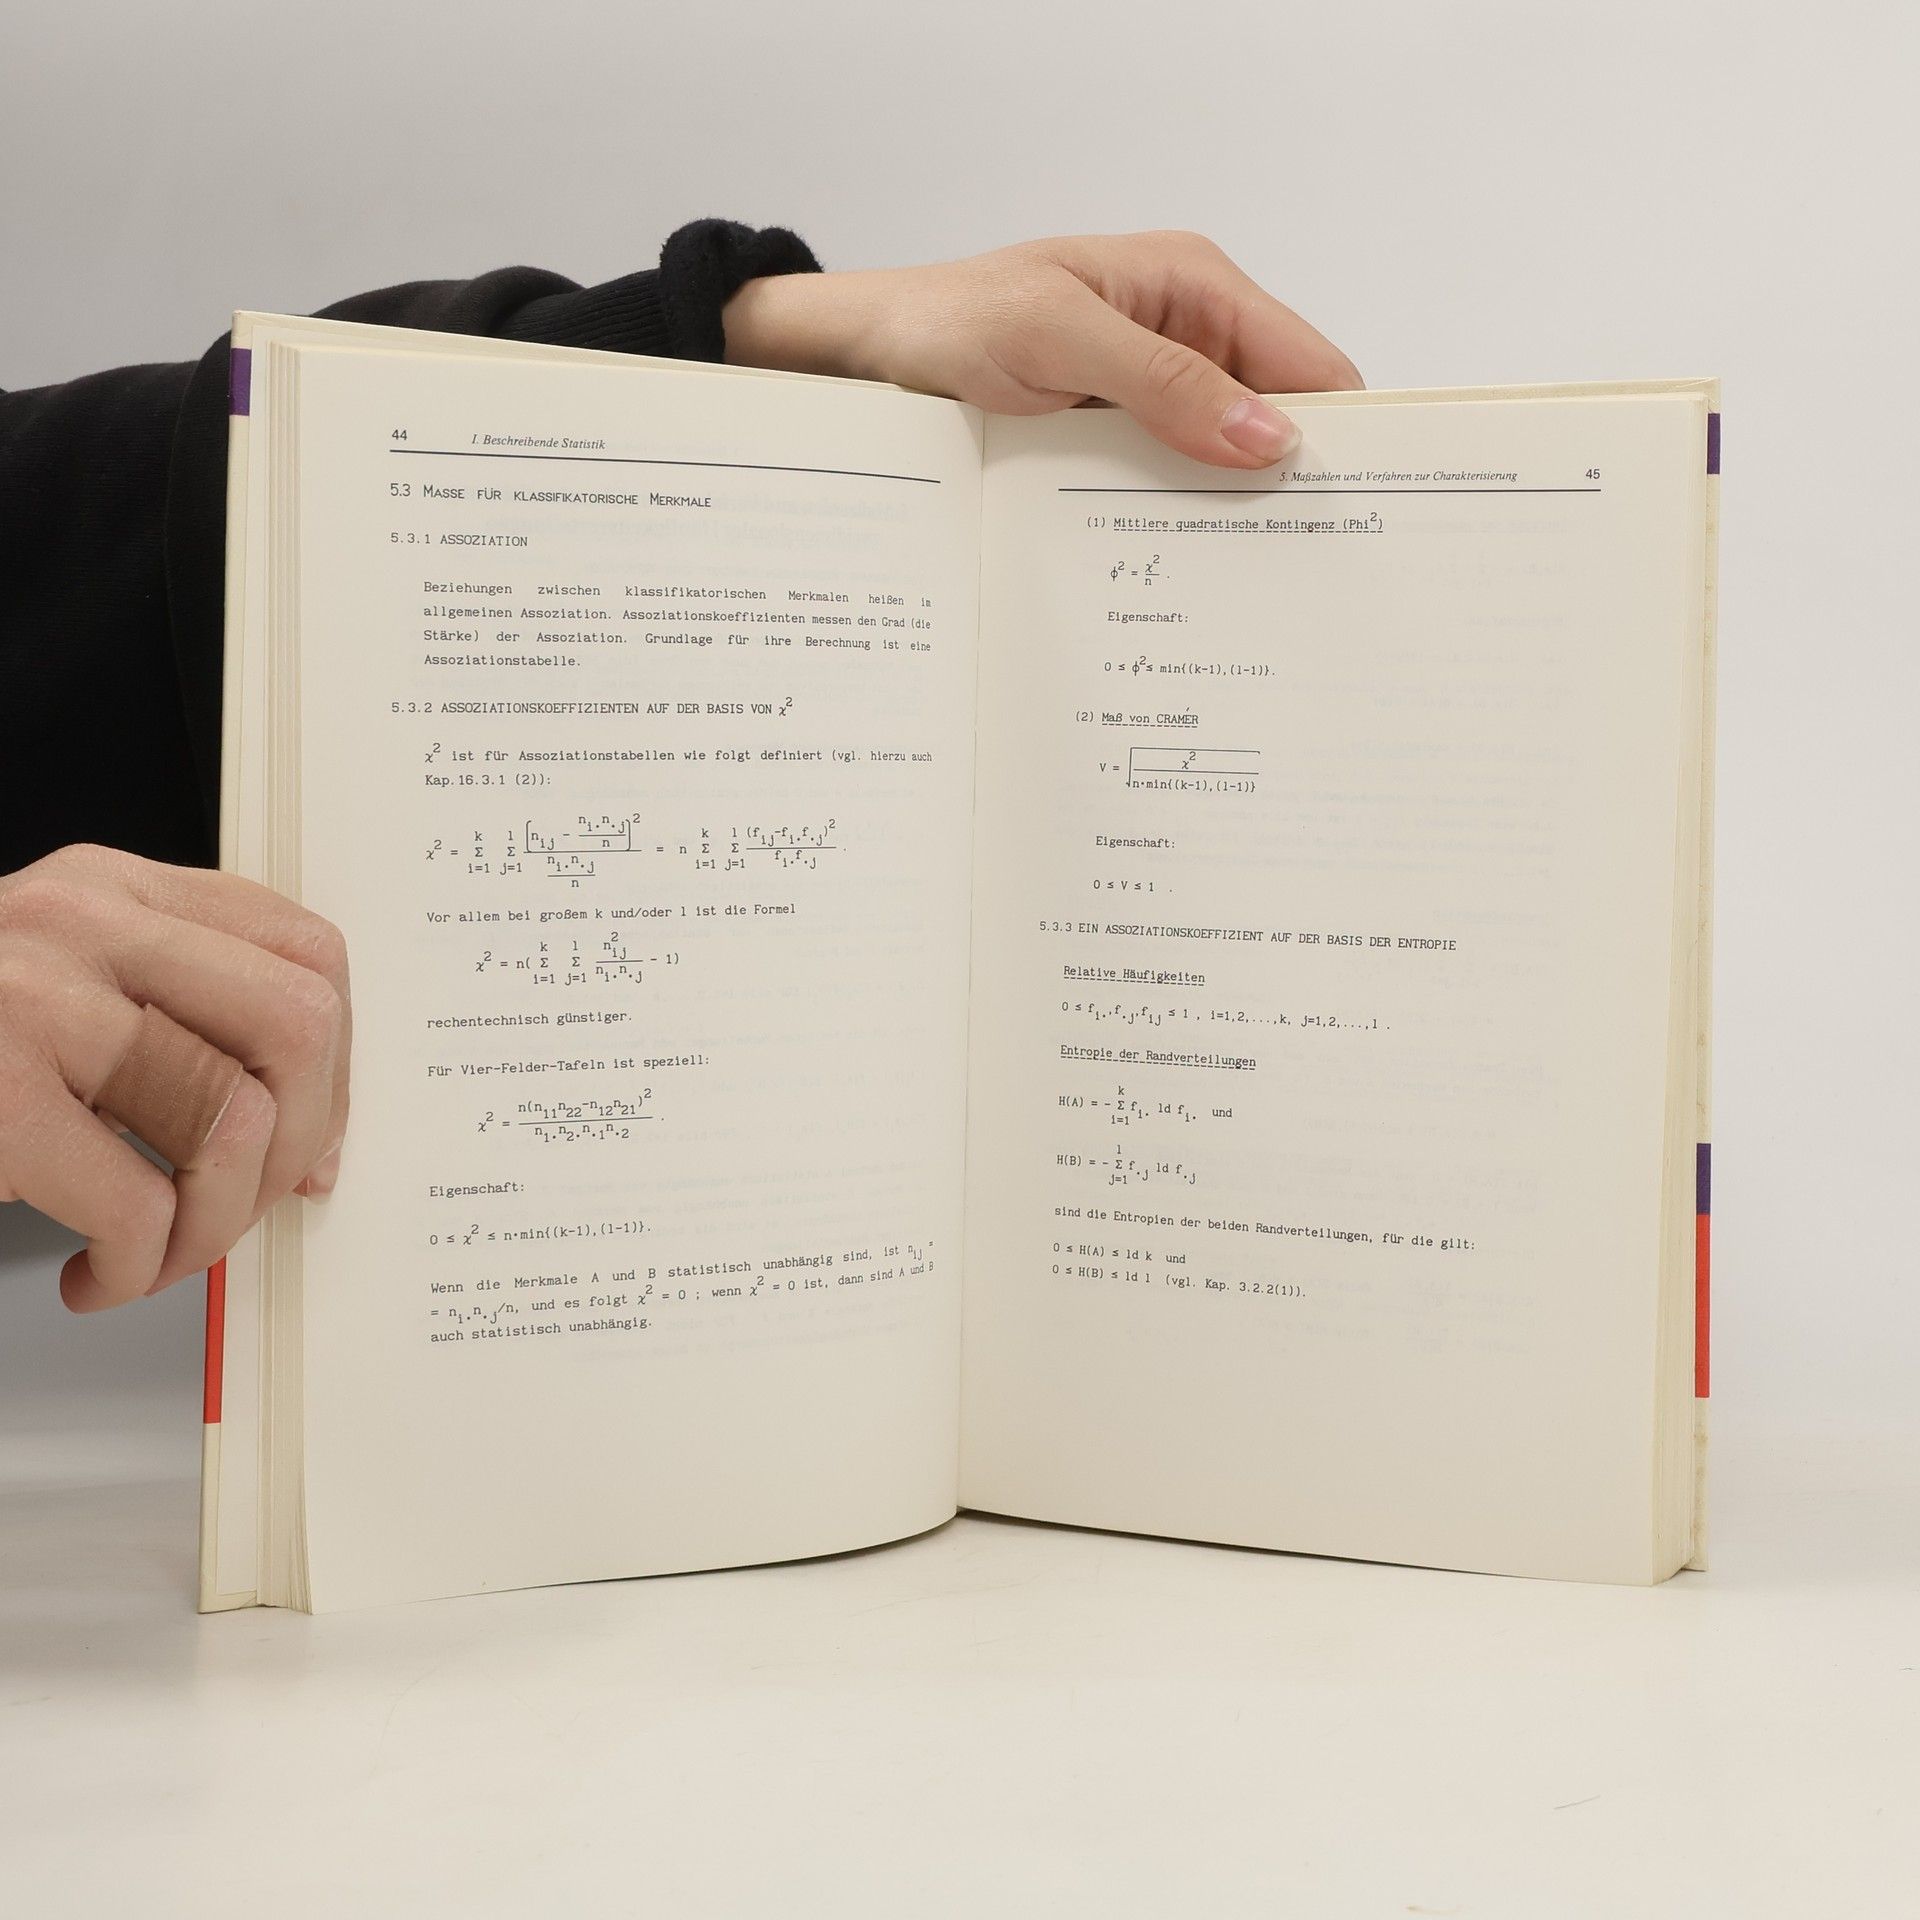 44 I. Beschreibende Statistik
5.3 MASSE FÜR KLASSIFIKATORISCHE MERKMALE
5.3.1 ASSOZIATION
Beziehungen zwischen klassifikatorischen Merkmalen heißen im
allgemeinen Assoziation. Assoziationskoeffizienten messen den Grad (die
Stärke) der Assoziation. Grundlage für ihre Berechnung ist eine
Assoziationstabelle.
5.3.2 ASSOZIATIONSKOEFFIZIENTEN AUF DER BASIS VON χ²
χ² ist für Assoziationstabellen wie folgt definiert (vgl. hierzu auch
Kap.16.3.1 (2)):
χ² = Σ_{i=1}^{k} Σ_{j=1}^{l} [n_{ij} - n_{i.}n_{.j}/n]² / (n_{i.}n_{.j}/n) = n Σ_{i=1}^{k} Σ_{j=1}^{l} (f_{ij}-f_{i.}f_{.j})² / (f_{i.}f_{.j}) .
Vor allem bei großem k und/oder l ist die Formel
χ² = n( Σ_{i=1}^{k} Σ_{j=1}^{l} n_{ij}² / (n_{i.}n_{.j}) - 1)
rechentechnisch günstiger.
Für Vier-Felder-Tafeln ist speziell:
χ² = n(n_{11}n_{22}-n_{12}n_{21})² / (n_{1.}n_{2.}n_{.1}n_{.2}) .
Eigenschaft:
0 ≤ χ² ≤ n·min{(k-1),(l-1)}.
Wenn die Merkmale A und B statistisch unabhängig sind, ist n_{ij} =
= n_{i.}n_{.j}/n, und es folgt χ² = 0 ; wenn χ² = 0 ist, dann sind A und B
auch statistisch unabhängig.
5. Maßzahlen und Verfahren zur Charakterisierung 45
(1) Mittlere quadratische Kontingenz (Phi²)
ϕ² = χ²/n .
Eigenschaft:
0 ≤ ϕ² ≤ min{(k-1),(l-1)}.
(2) Maß von CRAMÉR
V = √(χ² / (n·min{(k-1),(l-1)}))
Eigenschaft:
0 ≤ V ≤ 1 .
5.3.3 EIN ASSOZIATIONSKOEFFIZIENT AUF DER BASIS DER ENTROPIE
Relative Häufigkeiten
0 ≤ f_{i.},f_{.j},f_{ij} ≤ 1 , i=1,2,...,k, j=1,2,...,l .
Entropie der Randverteilungen
H(A) = - Σ_{i=1}^{k} f_{i.} ld f_{i.} und
H(B) = - Σ_{j=1}^{l} f_{.j} ld f_{.j}
sind die Entropien der beiden Randverteilungen, für die gilt:
0 ≤ H(A) ≤ ld k und
0 ≤ H(B) ≤ ld l (vgl. Kap. 3.2.2(1)).